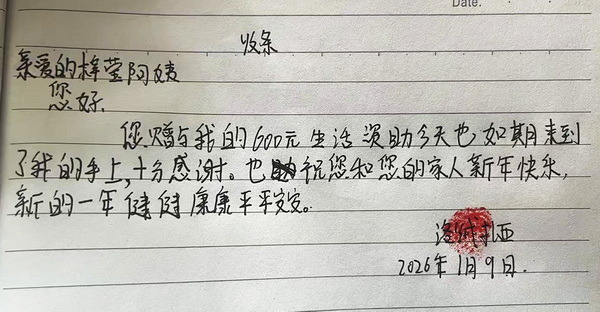 Date.
收条
亲爱的梓莹阿姨
您好
您赠与我的600元生活资助今天也如期来到
了我的手上,十分感谢。也祝您和您的家人新年快乐,
新的一年健健康康平平安安。
洛绒扎西
2026年1月9日.